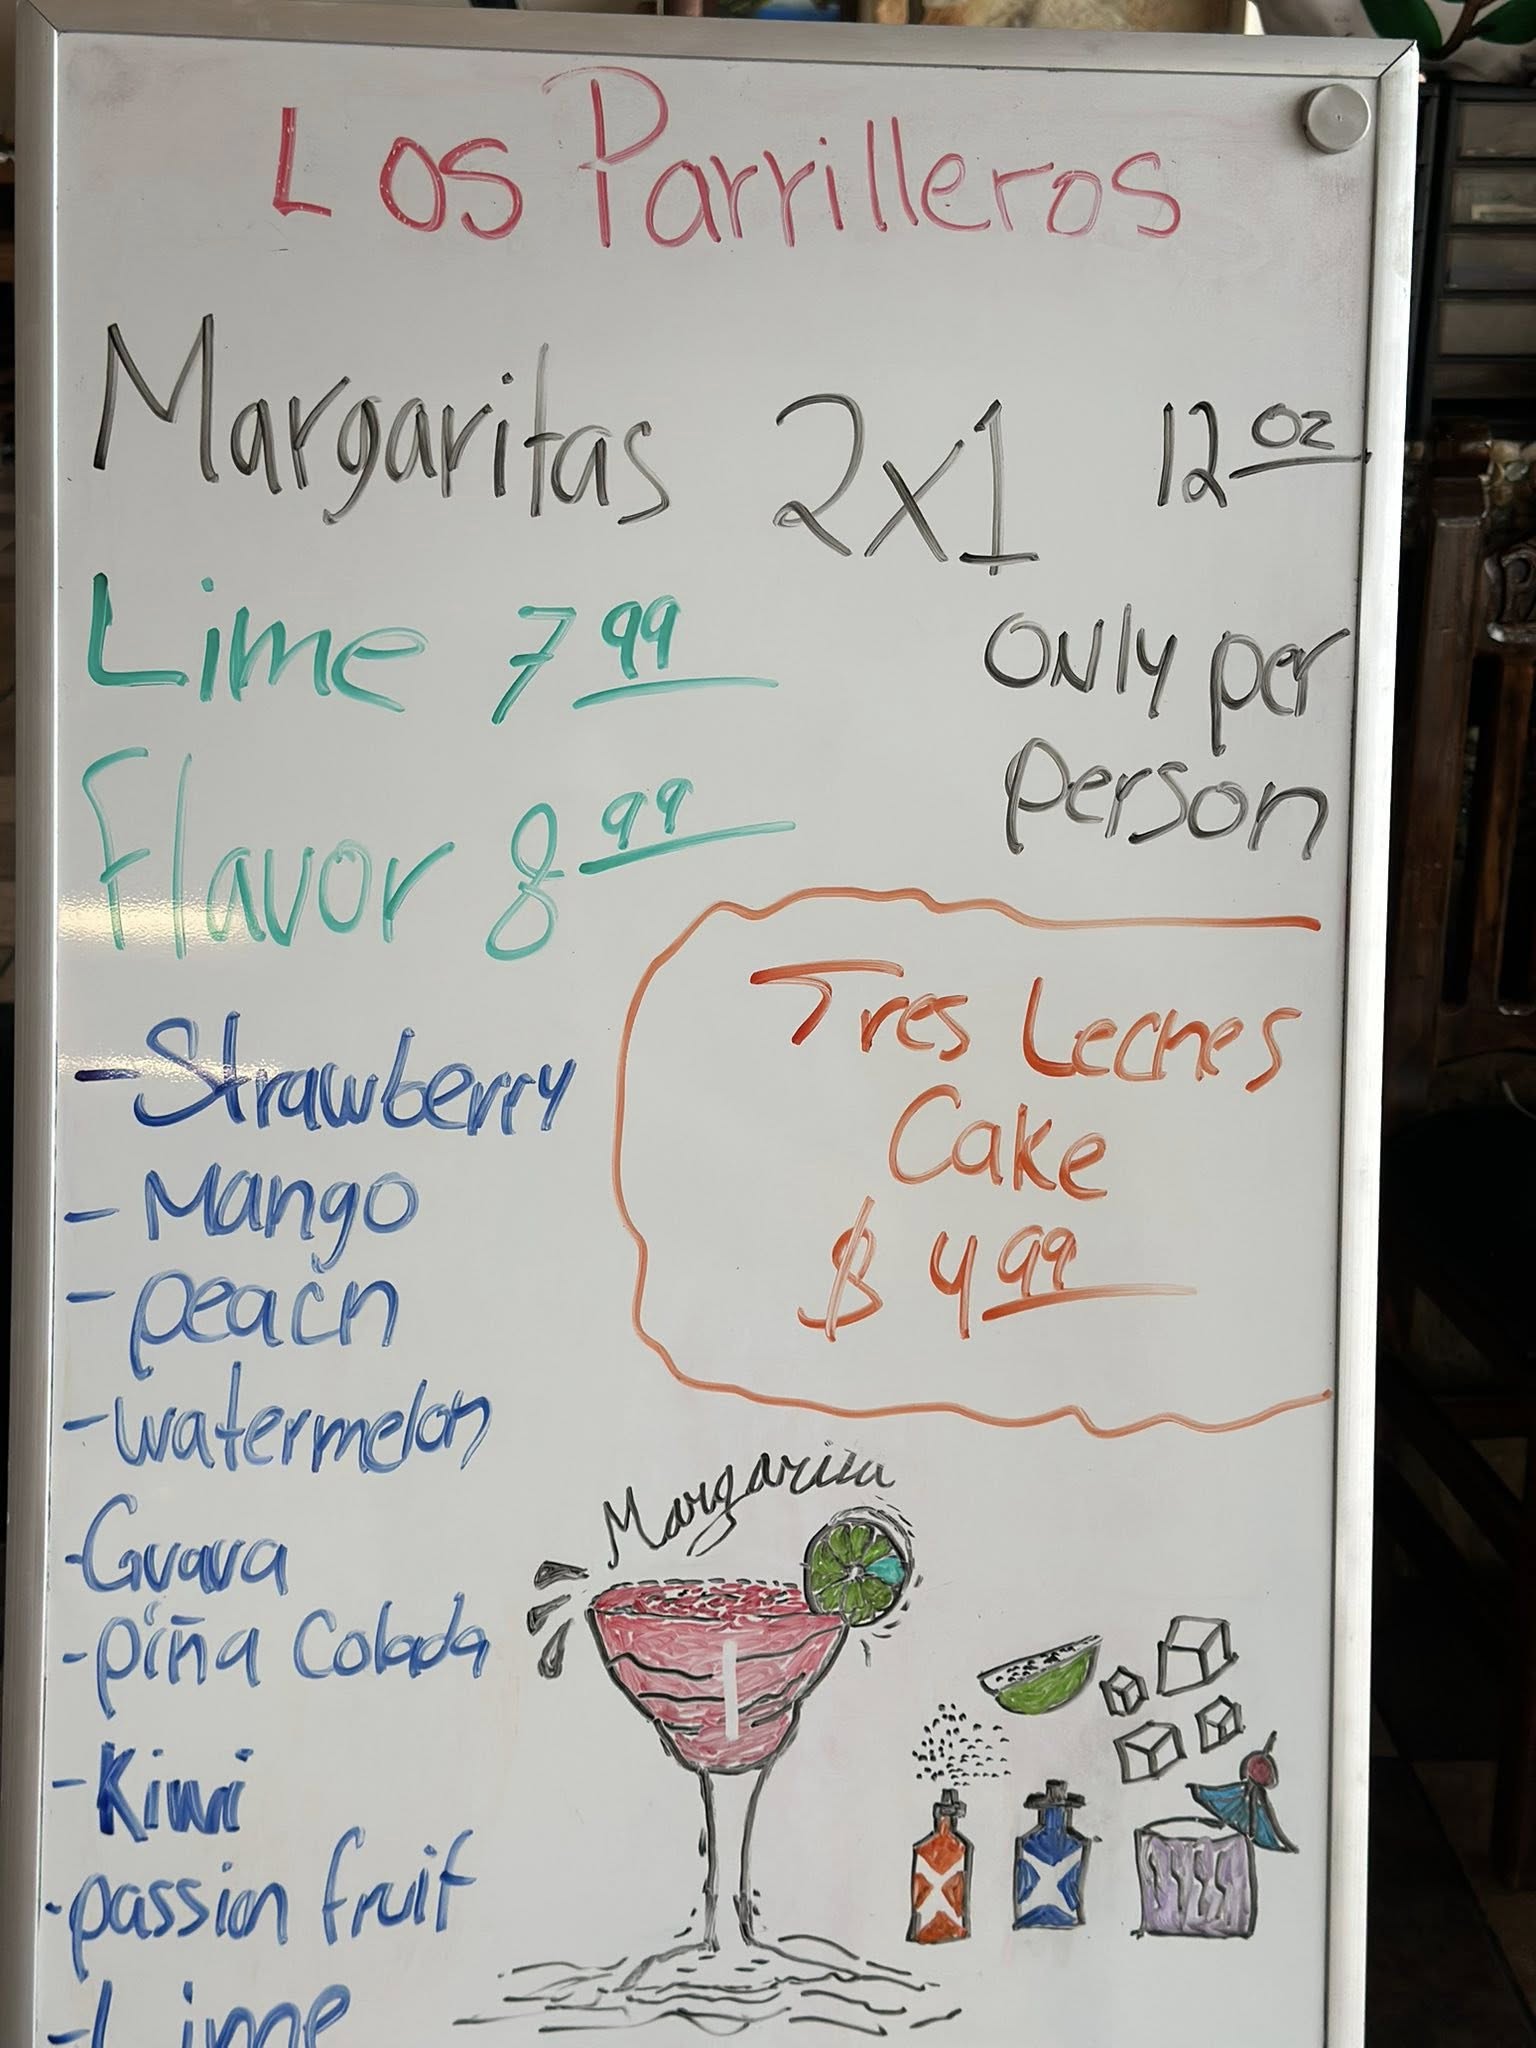 Los Parrilleros
Margaritas 2x1 12 oz
Lime 7 99
only per
person
Flavor 8 99
Tres Leches
Cake
$ 4 99
- Strawberry
- Mango
- peach
- watermelon
- Guava
- piña Colada
- Kiwi
- passion fruit
- Lime
Margarita